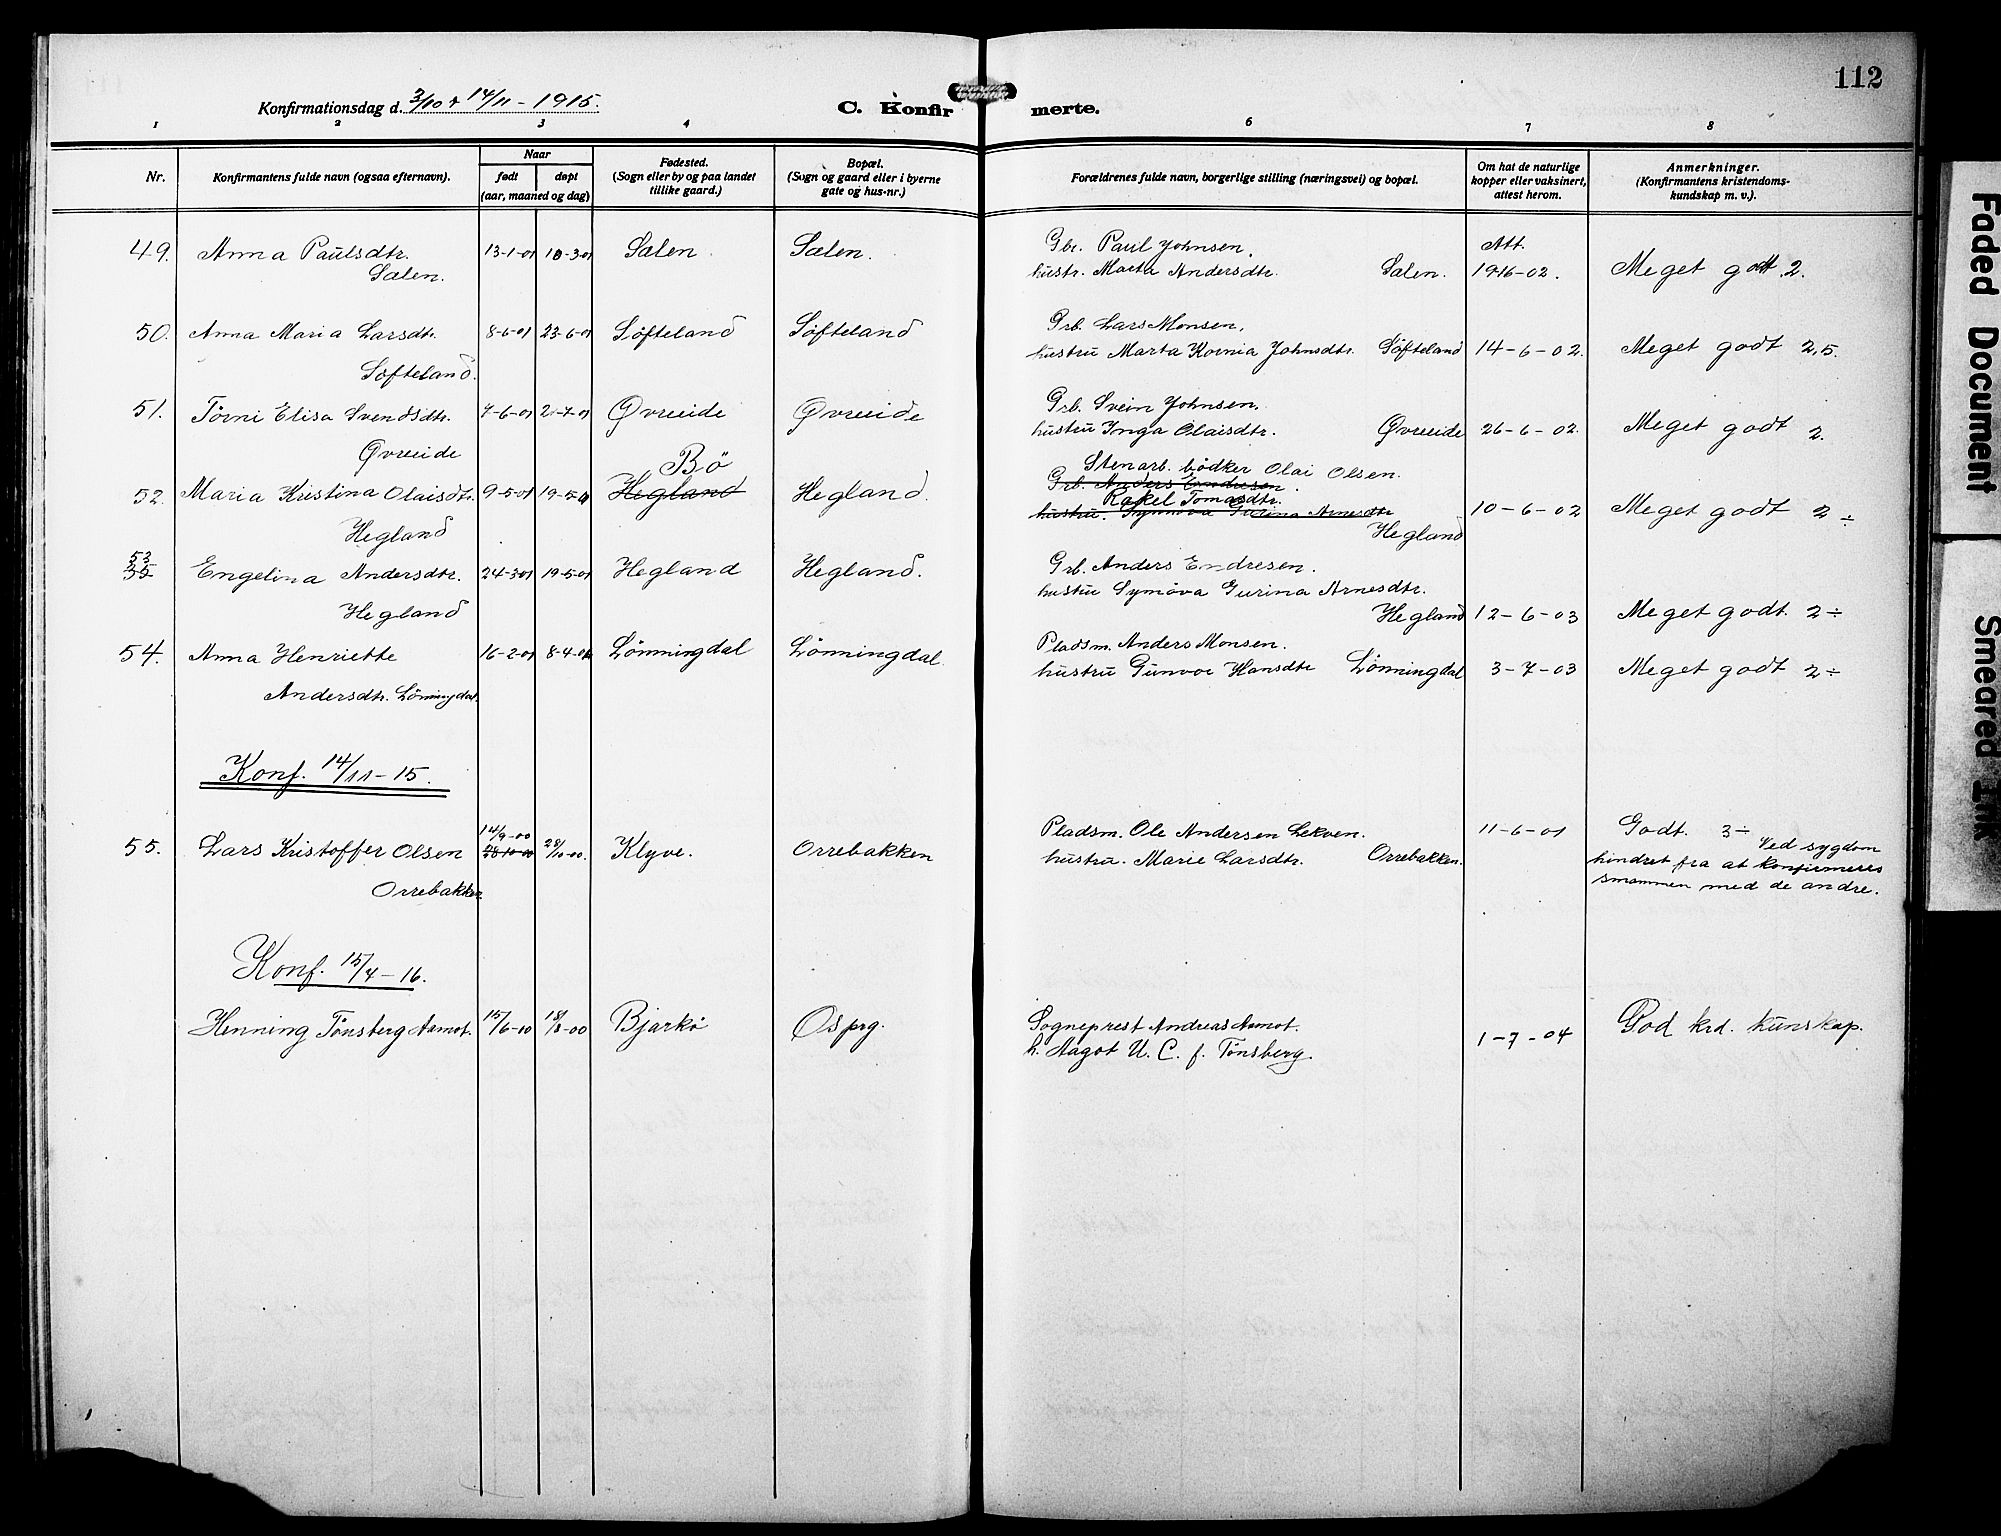 112
Konfirmationsdag d. 3/10 & 14/11 - 1915.
C. Konfirmerte.
1 2 3 4 6 7 8
Nr.
Konfirmantens fulde navn (ogsaa efternavn).
Naar
født døpt
(aar, maaned og dag)
Fødested.
(Sogn eller by og paa landet
tillike gaard.)
Bopæl.
(Sogn og gaard eller i byerne
gate og hus-nr.)
Forældrenes fulde navn, borgerlige stilling (næringsvei) og bopæl.
Om hat de naturlige
kopper eller vaksinert,
attest herom.
Anmerkninger.
(Konfirmantens kristendoms-
kundskap m. v.).
49. Anna Paulsdtr. 13-1-01 10-3-01 Sælen. Sælen. Gbr. Paul Johnsen. Att.
Sælen. hustr. Marta Andersdtr. Sælen. 1916-02. Meget godt. 2.
50. Anna Maria Larsdtr. 8-6-01 23-6-01 Søfteland Søfteland Grb. Lars Monsen,
Søfteland. hustru Marta Kornia Johnsdtr. Søfteland 14-6-02. Meget godt 2,5.
51. Tørni Elisa Svendsdtr. 7-6-01 21-7-01 Øvreeide Øvreeide Grb. Svein Johnsen.
Øvreeide hustru Inga Olaisdtr. Øvreeide 26-6-02. Meget godt 2.
Bö Stenarb. bödker Olai Olsen.
52. Maria Kristina Olaisdtr. 9-5-01 19-5-01 Hegland Hegland. Grb. Anders Endresen.
Rakel Tomasdtr.
Hegland hustru. Synnöva Gurina Arnesdtr Hegland 10-6-02 Meget godt 2 ÷
53
Engelina Andersdtr. 24-3-01 19-5-01 Hegland Hegland. Grb. Anders Endresen.
Hegland hustru Synnöva Gurina Arnesdtr.
Hegland 12-6-03 Meget godt. 2÷
54. Anna Henriette 16-2-01 8-4-01 Lönningdal Lönningdal. Pladsm. Anders Monsen.
Andersdtr. Lönningdal. hustru Gunvor Hansdtr Lönningdal 3-7-03 Meget godt 2÷
Konf. 14/11-15.
14/9-00
55. Lars Kristoffer Olsen 28-10-00 28/10-00. Klyve. Orrebakken Pladsm. Ole Andersen Lekven. 11-6-01 Godt. 3-
Orrebakken hustru. Marie Larsdtr. Orrebakken. Ved sygdom
hindret fra at konfirmeres
smammen med de andre.
Konf. 15/4-16.
Henning Tönsberg Aamot. 15/6-00 18/8-00 Bjarkö Os prg. Sogneprest Andreas Aamot. 1-7-04 God krd. kunskap.
h. Aagot U. C. f. Tönsberg.
Faded Document
Smeared Ink